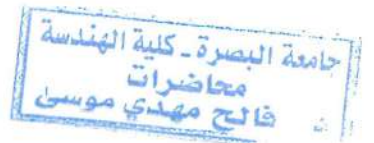 جامعة البصرة - كلية الهندسة
محاضرات
فالح مهدي موسى